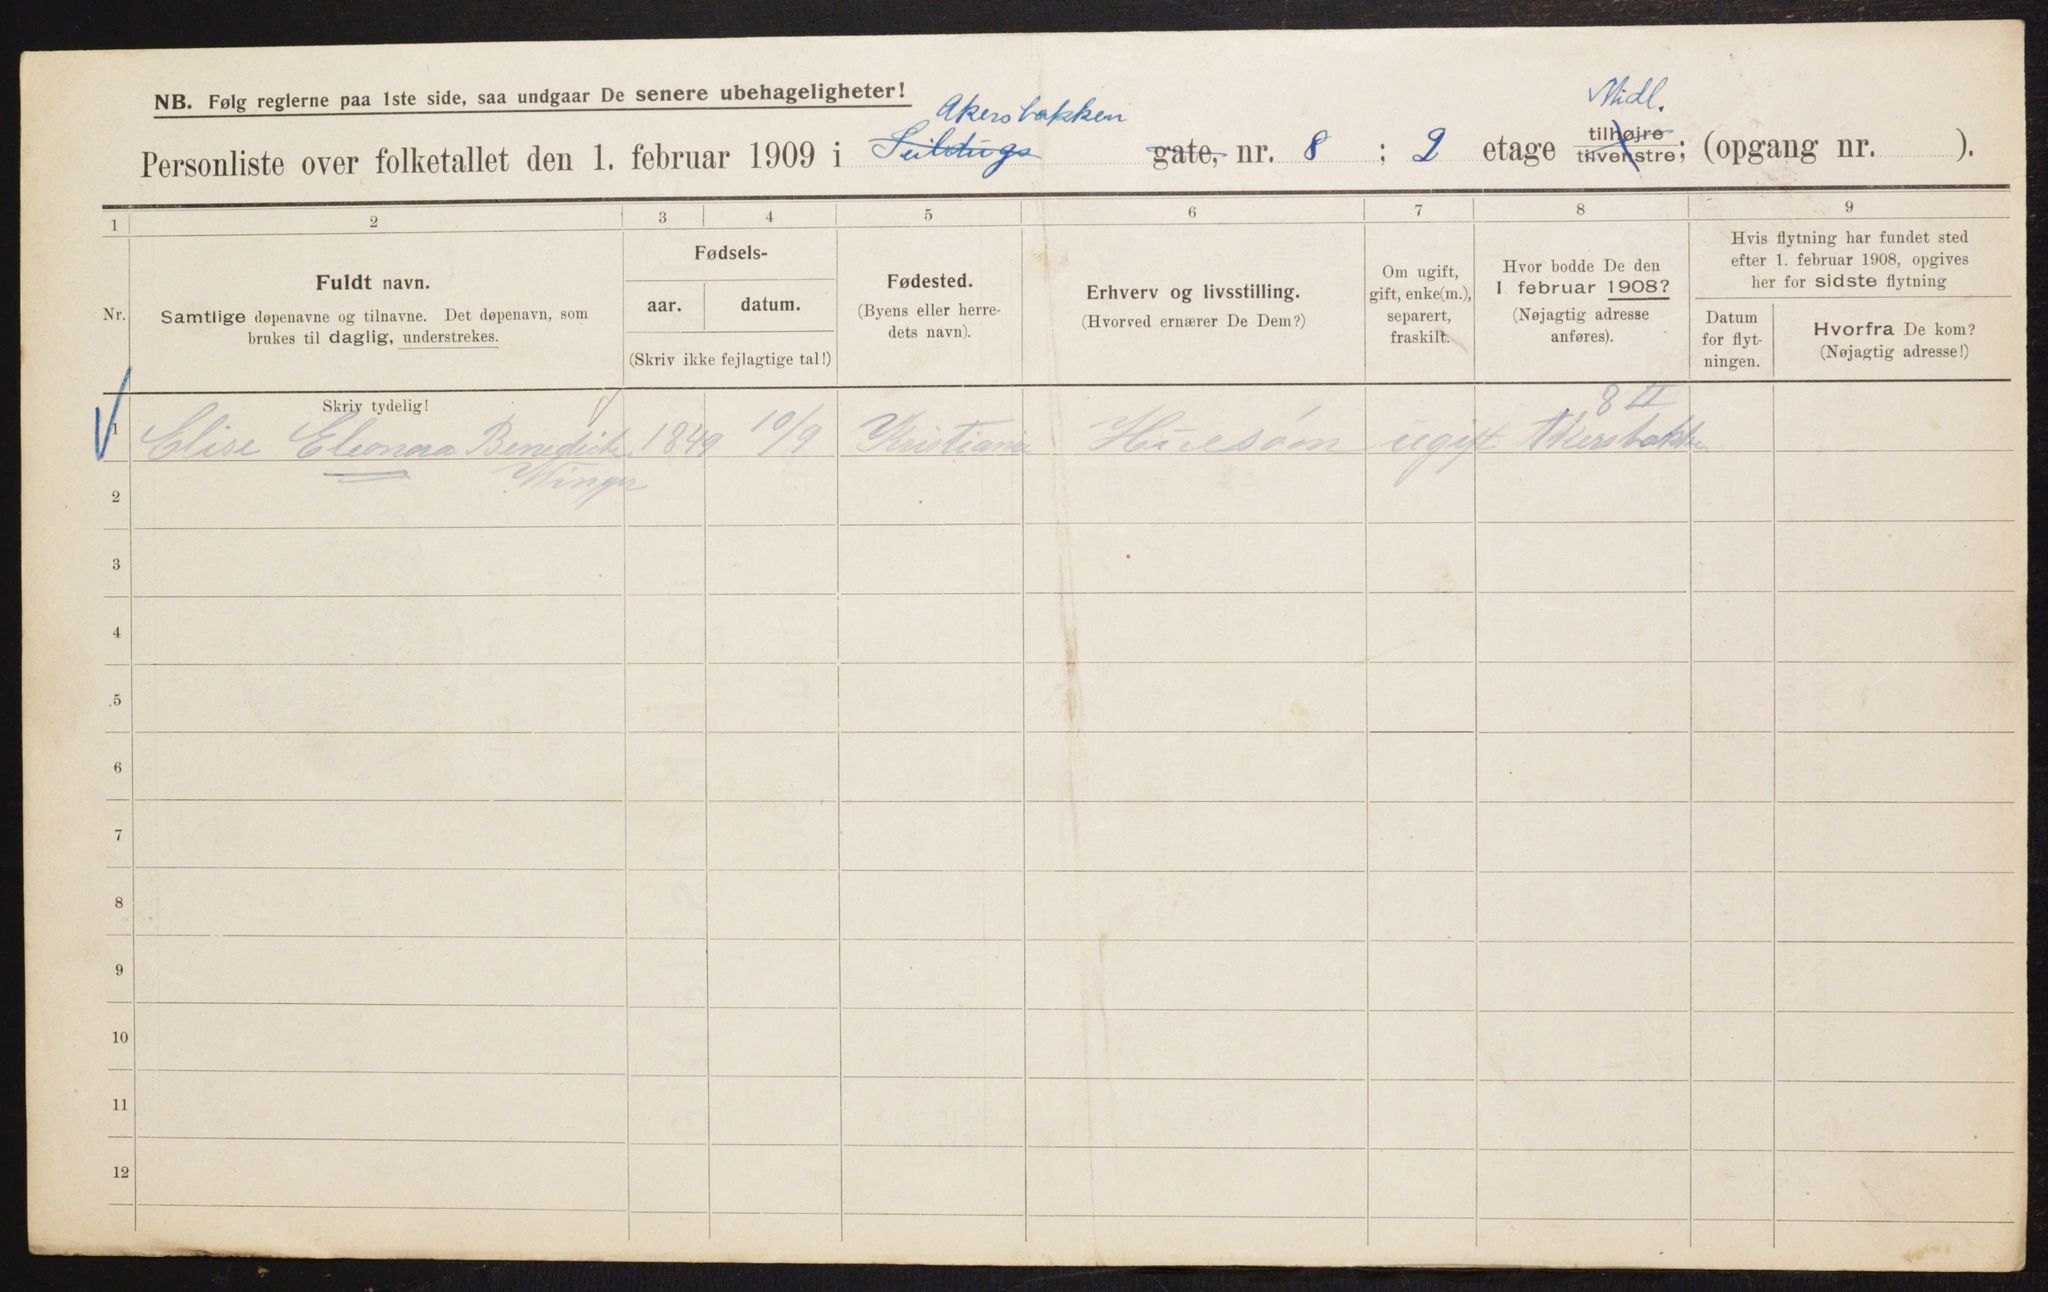 NB. Følg reglerne paa 1ste side, saa undgaar De senere ubehageligheter!
Akersbakken
Midl.
Personliste over folketallet den 1. februar 1909 i Seildugs gate, nr. 8 ; 2 etage tilhøjre tilvenstre; (opgang nr. ).
1 2 3 4 5 6 7 8 9
Nr.
Fuldt navn.
Samtlige døpenavne og tilnavne. Det døpenavn, som
brukes til daglig, understrekes.
Skriv tydelig!
Fødsels-
aar. datum.
(Skriv ikke fejlagtige tal!)
Fødested.
(Byens eller herre-
dets navn).
Erhverv og livsstilling.
(Hvorved ernærer De Dem?)
Om ugift,
gift, enke(m.),
separert,
fraskilt.
Hvor bodde De den
1. februar 1908?
(Nøjagtig adresse
anføres).
Hvis flytning har fundet sted
efter 1. februar 1908, opgives
her for sidste flytning
Datum
for flyt-
ningen.
Hvorfra De kom?
(Nøjagtig adresse!)
8 II
1 Elise Eleonora Benedicte 1849 10/9 Kristiania ugift Akersbakken
2
3
4
5
6
7
8
9
10
11
12